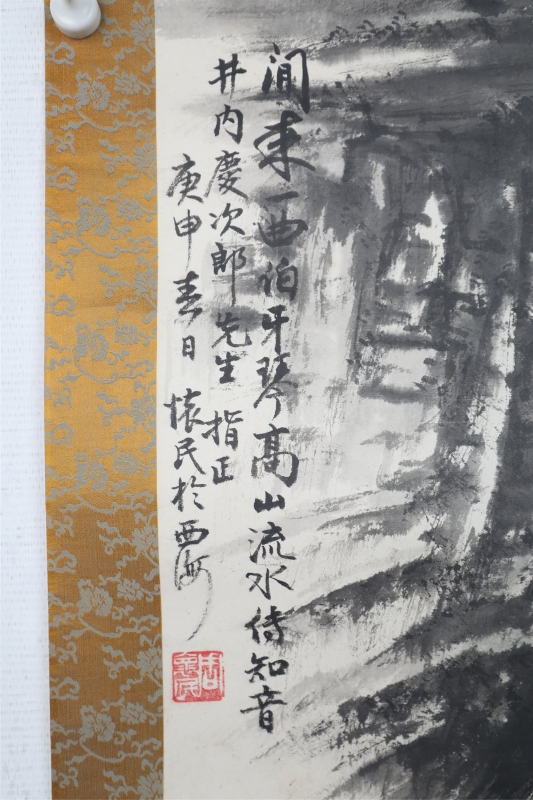 间来一曲伯牙琴高山流水待知音
井内慶次郎先生指正
庚申春日懷民於西
周懷民